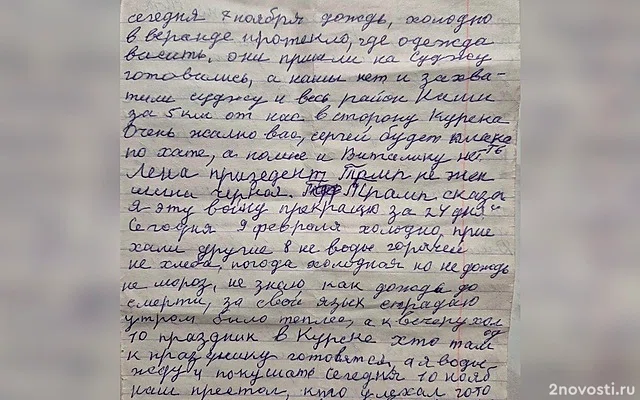 сегодня 7 ноября дождь, холодно
в веранде протекло, где одежда
васить, они пришли на Суджу
готовились, а нашы нет и захва-
тили суджу и весь район Наши
за 5 км от нас в сторону Курска
Очень жално вас, сергей будет плака
ть
по хате, а по мне и Виталику не
Лена призедент Трамп не жен
шина черная. Трамп сказа
я эту войну прекращю за 24 дня"
Сегодня 9 февраля холодно, прие
хали другие 8 не воды горячей
не хлеба, погода холодная но не дождь
не мороз, не знаю как дожда до
смерти, за свой язык страдаю
утром было теплее, а к вечеру хол
од
10 праздник в Курске хто там
к празднику готовятся, а я воды
жду и покушать Сегодня 10 нояб
наш престол, кто уехал гото
2novosti.ru